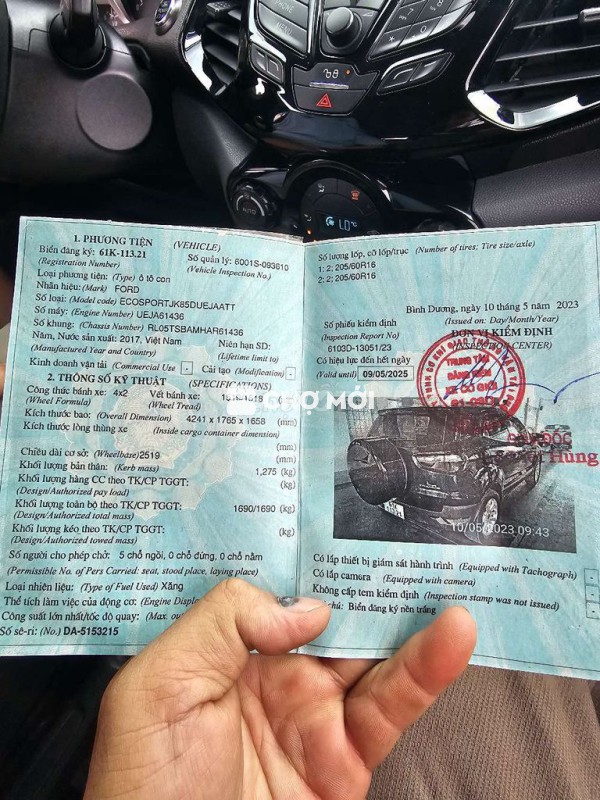 MENU
AUTO
LO°
1. PHƯƠNG TIỆN (VEHICLE)
Biển đăng ký: 61K-113.21 Số quản lý: 6001S-093610
(Registration Number) (Vehicle Inspection No.)
Loại phương tiện: (Type) ô tô con
Nhãn hiệu: (Mark) FORD
Số loại: (Model code) ECOSPORTJK85DUEJAATT
Số máy: (Engine Number) UEJA61436
Số khung: (Chassis Number) RL05TSBAMHAR61436
Năm, Nước sản xuất: 2017, Việt Nam Niên hạn SD:
(Manufactured Year and Country) (Lifetime limit to)
Kinh doanh vận tải (Commercial Use) - Cải tạo (Modification) -
2. THÔNG SỐ KỸ THUẬT (SPECIFICATIONS)
Công thức bánh xe: 4x2 Vết bánh xe:
(Wheel Formula) (Wheel Tread)
Kích thước bao: (Overall Dimension) 4241 x 1765 x 1658 (mm)
Kích thước lòng thùng xe (Inside cargo container dimension)
(mm)
Chiều dài cơ sở: (Wheelbase) 2519 (mm)
Khối lượng bản thân: (Kerb mass) 1,275 (kg)
Khối lượng hàng CC theo TK/CP TGGT: (kg)
(Design/Authorized pay load)
Khối lượng toàn bộ theo TK/CP TGGT: 1690/1690 (kg)
(Design/Authorized total mass)
Khối lượng kéo theo TK/CP TGGT: (kg)
(Design/Authorized towed mass)
Số người cho phép chở: 5 chỗ ngồi, 0 chỗ đứng, 0 chỗ nằm
(Permissible No. of Pers Carried: seat, stood place, laying place)
Loại nhiên liệu: (Type of Fuel Used) Xăng
Thể tích làm việc của động cơ: (Engine Displ
Công suất lớn nhất/tốc độ quay: (Max. ou
Số sê-ri: (No.) DA-5153215
CHỢ MỚI
Số lượng lốp, cỡ lốp/trục (Number of tires; Tire size/axle)
1: 2; 205/60R16
2: 2; 205/60R16
Bình Dương, ngày 10 tháng 5 năm 2023
Số phiếu kiểm định (Issued on: Day/Month/Year)
(Inspection Report No) ĐƠN VỊ KIỂM ĐỊNH
6103D-13051/23 (INSPECTION CENTER)
Có hiệu lực đến hết ngày
(Valid until) 09/05/2025
TRUNG TÂM
ĐĂNG KIỂM
XE CƠ GIỚI
Hùng
10/05/2023 09:43
Có lắp thiết bị giám sát hành trình (Equipped with Tachograph) -
Có lắp camera (Equipped with camera)
Không cấp tem kiểm định (Inspection stamp was not issued)
chú: Biển đăng ký nền trắng